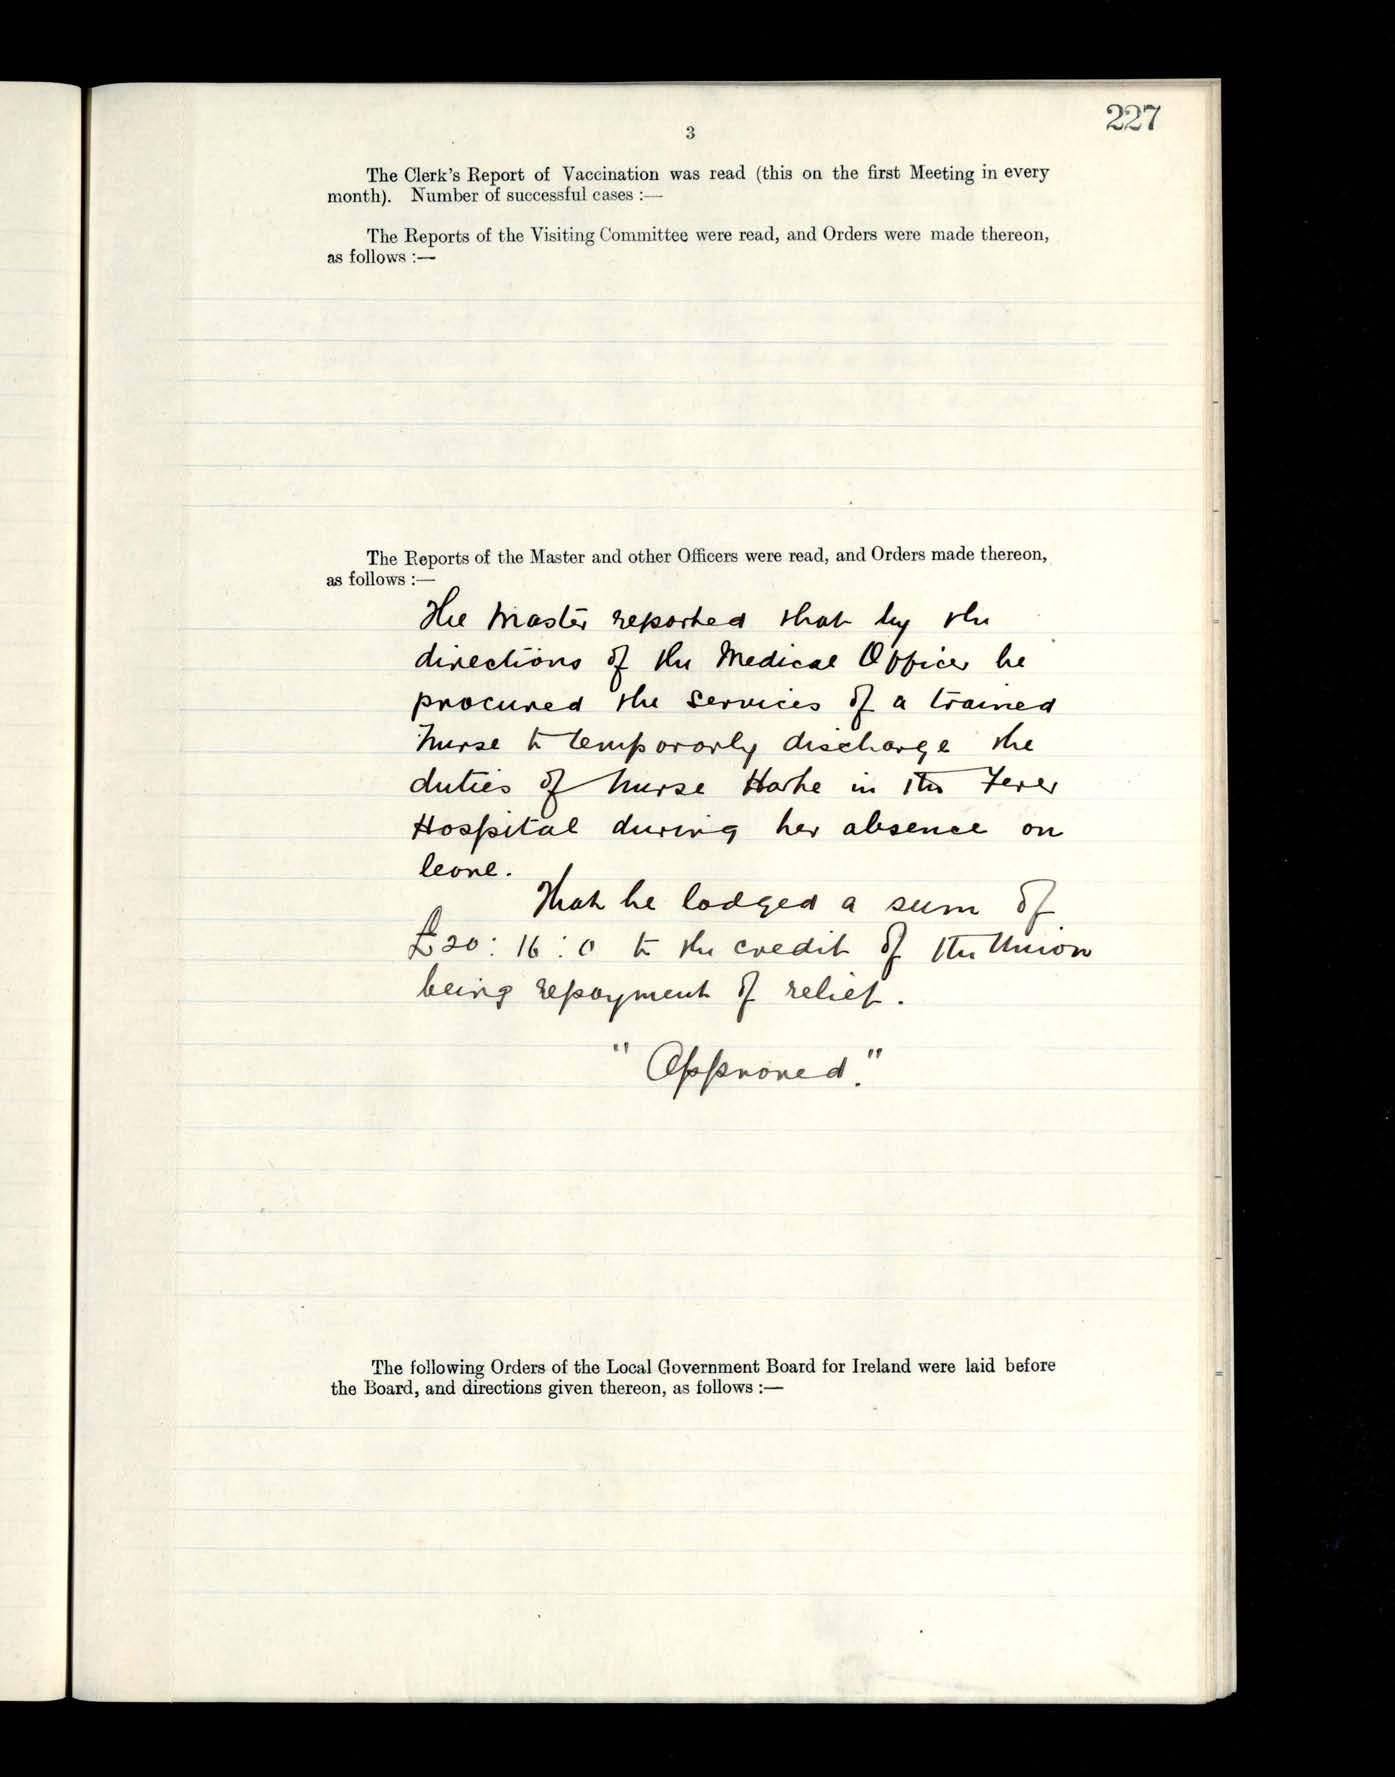 227
3
The Clerk's Report of Vaccination was read (this on the first Meeting in every
month). Number of successful cases :—
The Reports of the Visiting Committee were read, and Orders were made thereon,
as follows :—
The Reports of the Master and other Officers were read, and Orders made thereon,
as follows :—
The Master reported that by the
directions of the Medical Officer he
procured the services of a trained
Nurse to temporarly discharge the
duties of Nurse in the Fever
Hospital during her absence on
leave.
That he lodged a sum of
£20 : 16 : 0 to the credit of the Union
being repayment of relief.
"Approved."
The following Orders of the Local Government Board for Ireland were laid before
the Board, and directions given thereon, as follows :—